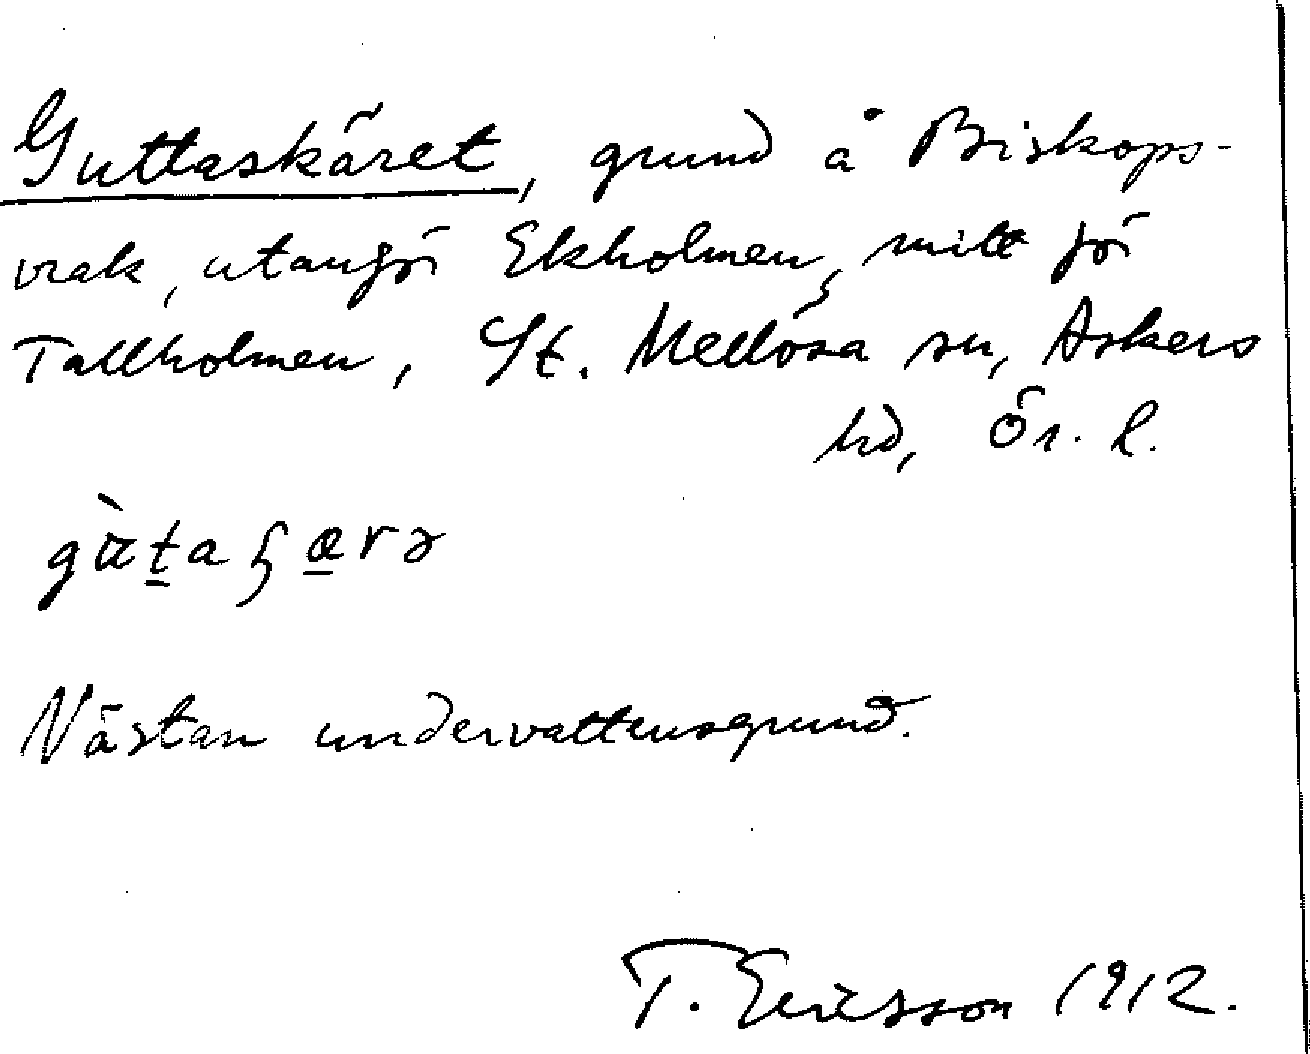 Guttaskäret, grund å Biskops-
vrak, utanför Ekholmen, mitt för
Tallholmen, St. Mellösa sn, Askers
hd, Ör. l.
Nästan undervattensgrund.
T. Ericsson 1912.